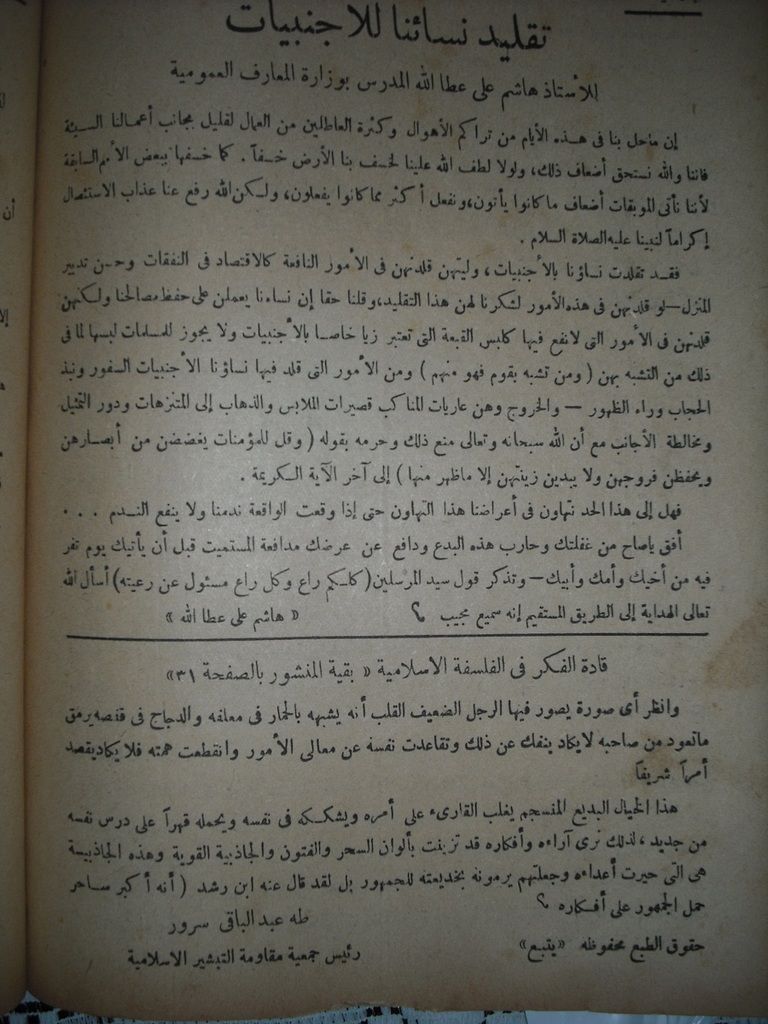 تقليد نسائنا للاجنبيات
للأستاذ هاشم على عطا الله المدرس بوزارة المعارف العمومية
إن ماحل بنا فى هذه الأيام من تراكم الأهوال وكثرة العاطلين من العمال لقليل بجانب أعمالنا السيئة
فاننا والله نستحق أضعاف ذلك، ولولا لطف الله علينا لخسف بنا الأرض خسفاً. كما خسفها ببعض الأمم السابقة
لأننا نأتى الموبقات أضعاف ما كانوا يأتون، ونفعل أكثر مما كانوا يفعلون، ولكن الله رفع عنا عذاب الاستئصال
إكراماً لنبينا عليه الصلاة السلام .
فقد تقلدت نساؤنا بالأجنبيات، وليتهن قلدنهن فى الأمور النافعة كالاقتصاد فى النفقات وحسن تدبير
المنزل — لو قلدنهن فى هذه الأمور لشكرنا لهن هذا التقليد، وقلنا حقا إن نساءنا يعملن على حفظ مصالحنا ولكنهن
قلدنهن فى الأمور التى لانفع فيها كلبس القبعة التى تعتبر زيا خاصا بالأجنبيات ولا يجوز للمسلمات لبسها لما فى
ذلك من التشبه بهن ( ومن تشبه بقوم فهو منهم ) ومن الأمور التى قلد فيها نساؤنا الأجنبيات السفور ونبذ
الحجاب وراء الظهور — والخروج وهن عاريات المناكب قصيرات الملابس والذهاب إلى المتنزهات ودور التمثيل
ومخالطة الأجانب مع أن الله سبحانه وتعالى منع ذلك وحرمه بقوله ( وقل للمؤمنات يغضضن من أبصارهن
ويحفظن فروجهن ولا يبدين زينتهن إلا ماظهر منها ) إلى آخر الآية الكريمة .
فهل إلى هذا الحد نتهاون فى أعراضنا هذا التهاون حتى إذا وقعت الواقعة ندمنا ولا ينفع الندم . . .
أفق ياصاح من غفلتك وحارب هذه البدع ودافع عن عرضك مدافعة المستميت قبل أن يأتيك يوم تفر
فيه من أخيك وأمك وأبيك — وتذكر قول سيد المرسلين (كلكم راع وكل راع مسئول عن رعيته) أسأل الله
تعالى الهداية إلى الطريق المستقيم إنه سميع مجيب ؟ « هاشم على عطا الله »
قادة الفكر فى الفلسفة الاسلامية « بقية المنشور بالصفحة ٣١»
وانظر أى صورة يصور فيها الرجل الضعيف القلب أنه يشبهه بالحمار فى معلفه والدجاج فى قفصه يرمق
ماتعود من صاحبه لايكاد ينفك عن ذلك وتقاعدت نفسه عن معالى الأمور وانقطعت همته فلا يكاد يقصد
أمراً شريفاً
هذا الخيال البديع المنسجم يغلب القارىء على أمره ويشككه فى نفسه ويحمله قهراً على درس نفسه
من جديد، لذلك نرى آراءه وأفكاره قد تزينت بألوان السحر والفتون والجاذبية القوية وهذه الجاذبيسة
هى التى حيرت أعداءه وجعلتهم يرمونه بخديعته للجمهور بل لقد قال عنه ابن رشد ( أنه أكبر ساحر
حمل الجمهور على أفكاره ؟
طه عبد الباقى سرور
حقوق الطبع محفوظه «يتبع» رئيس جمعية مقاومة التبشير الاسلامية